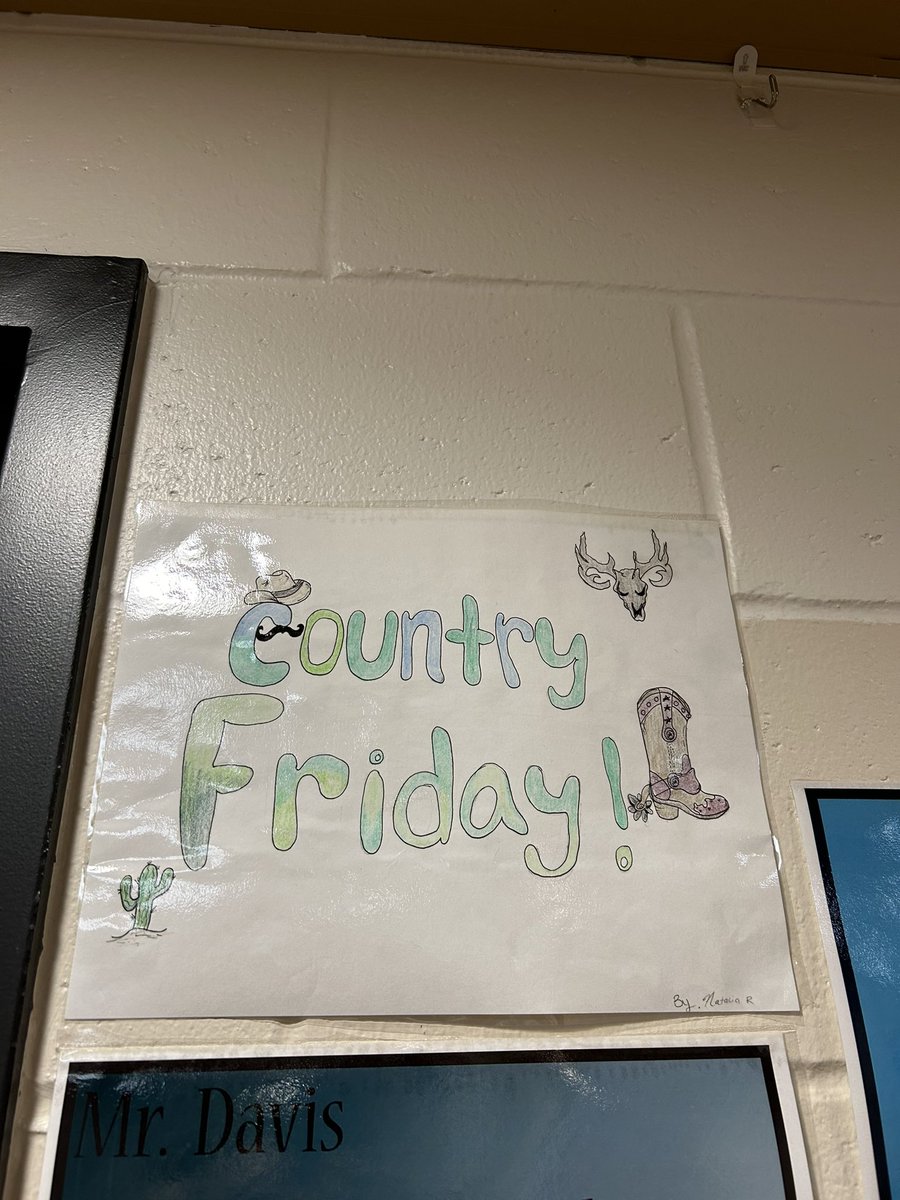 Country
Friday!
By. Natalia R
Mr. Davis